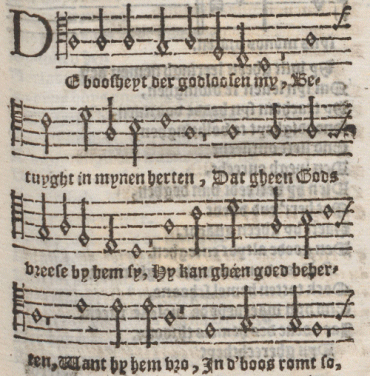 DE boosheyt der godloosen my, Be-
tuyght in mynen herten, Dat gheen Gods
vreese by hem sy, Hy kan gheen goed beher-
ten, Want by hem vro, In d'boos romt so,